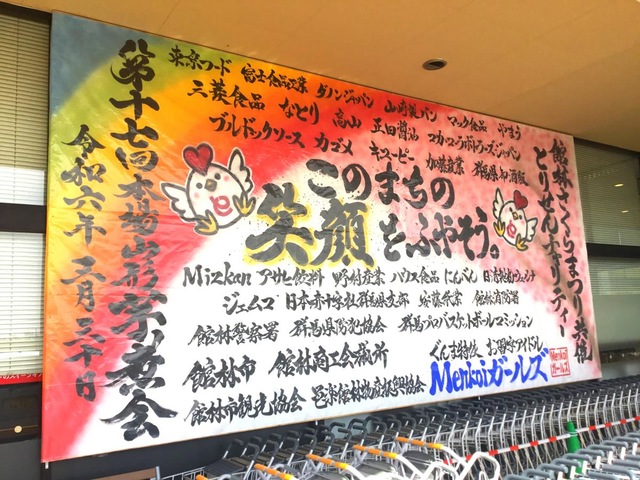 館林さくらまつり共催
とりせんチャリティー
第十七回本場山形芋煮会
令和六年三月三十日
東京フード 富士食品工業 ダノンジャパン 山崎製パン マック食品 やまう
三菱食品 なとり 高山 正田醤油 コカ・コーラボトラーズジャパン
ブルドックソース カゴメ キユーピー 加藤産業 群馬県卸酒販
このまちの
笑顔をふやそう。
Mizkan アサヒ飲料 野村産業 ハウス食品 にんべん 日清製粉ウェルナ
ジェムコ 日本赤十字社群馬県支部 安藤祭業 館林消防署
館林警察署 群馬県防犯協会 群馬プロバスケットボールコミッション
館林市 館林商工会議所 ぐんま特使 お閑学アイドル
館林市観光協会 邑楽館林物産振興協会 Menkoiガールズ
Menkoi
ガールズ